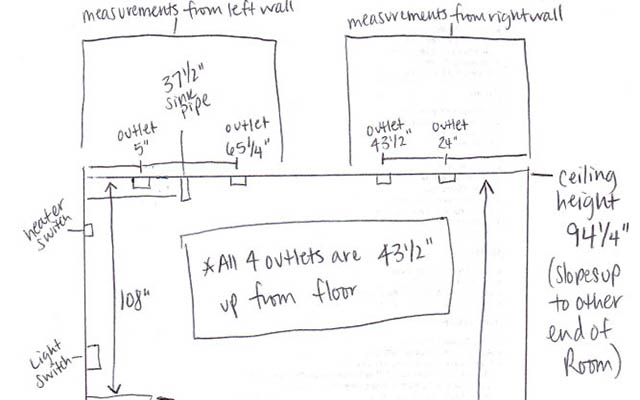 measurements from left wall
measurements from right wall
37 1/2"
sink
pipe
outlet
5"
outlet
65 1/4"
outlet
43 1/2"
outlet
24"
ceiling
height
94 1/4"
(slopes up
to other
end of
Room)
heater
switch
*All 4 outlets are 43 1/2"
up from floor
108"
Light
switch